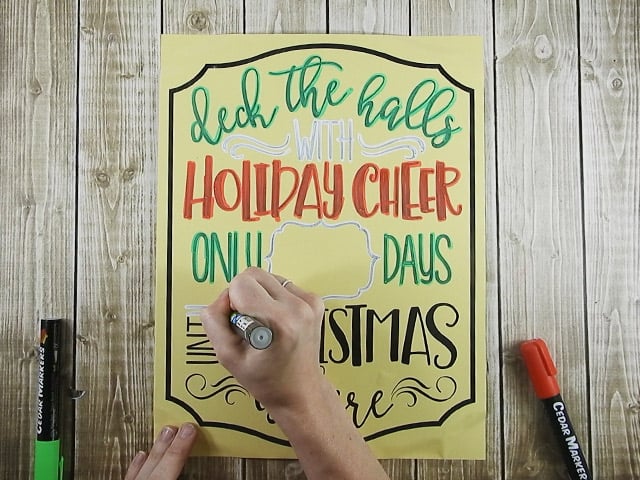 deck the halls
WITH
HOLIDAY CHEER
ONLY DAYS
CEDAR MARKERS
CEDAR MARKER